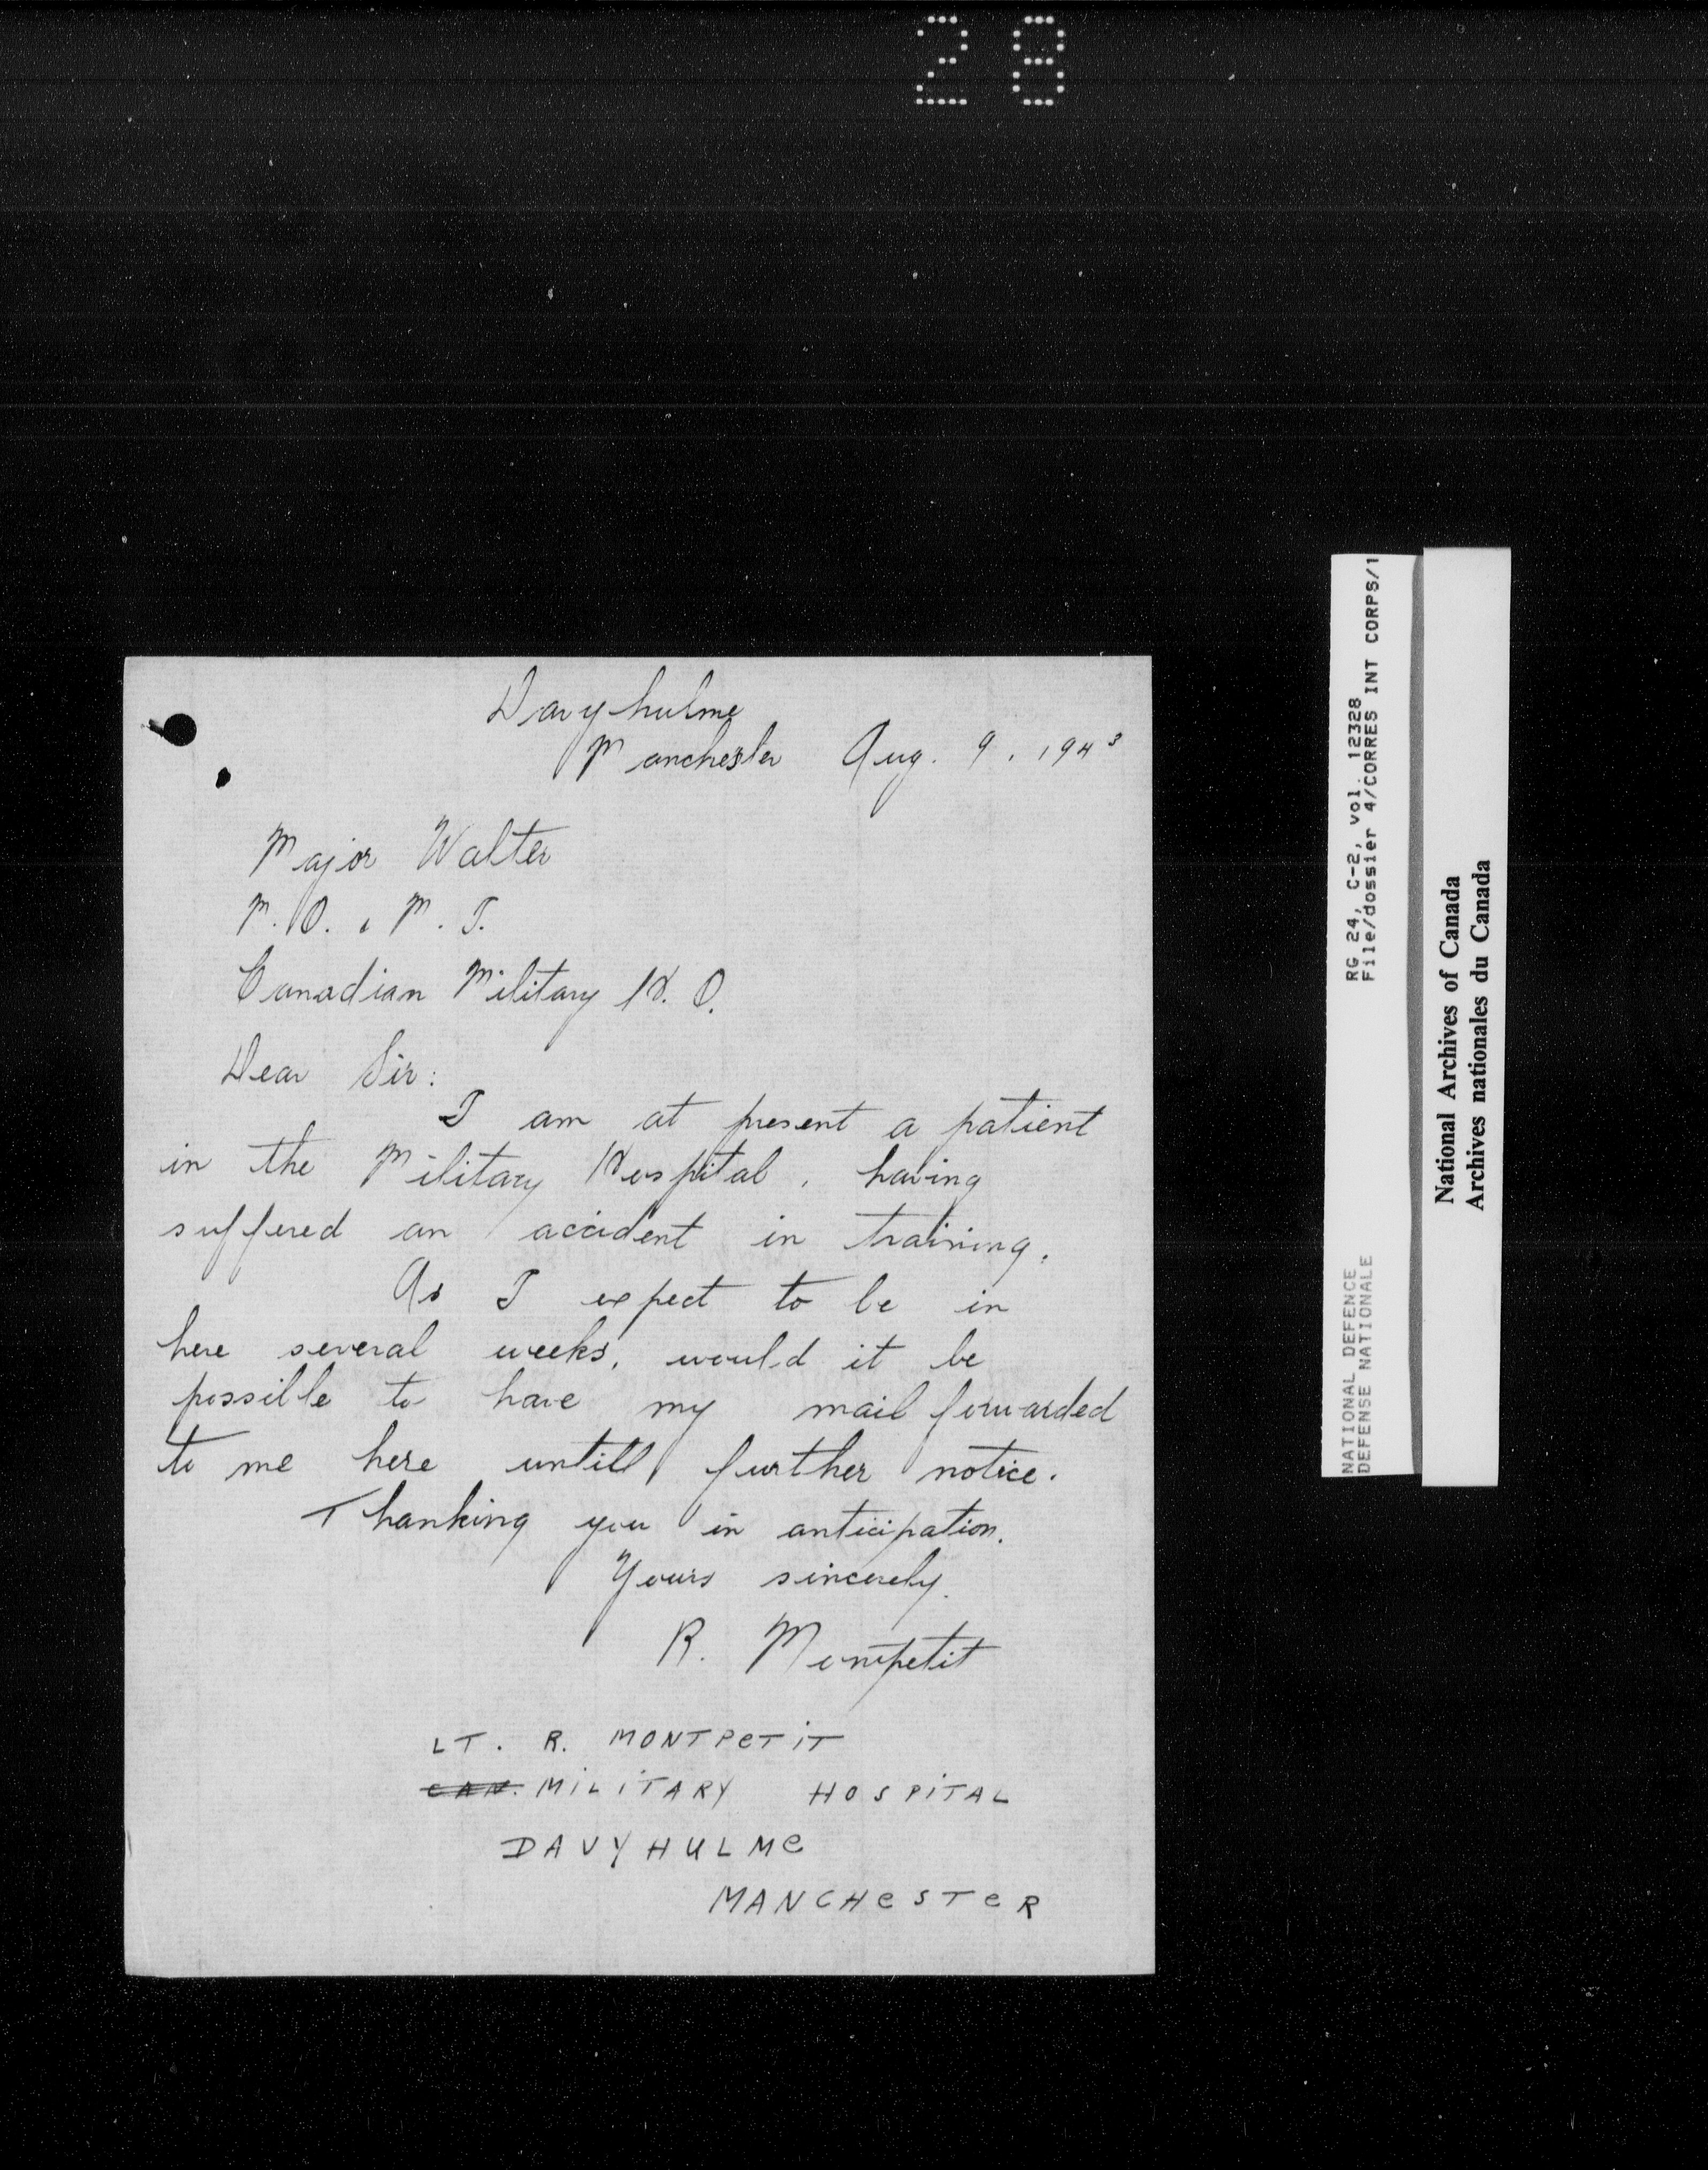 28
Davyhulme
Manchester Aug. 9, 1943
Major Walter
M.O. , M. I.
Canadian Military H. Q.
Dear Sir:
I am at present a patient
in the Military Hospital, having
suffered an accident in training.
As I expect to be in
here several weeks, would it be
possible to have my mail forwarded
to me here untill further notice.
Thanking you in anticipation.
Yours sincerely.
R. Montpetit
LT. R. MONTPETIT
CAN. MILITARY HOSPITAL
DAVYHULME
MANCHESTER
NATIONAL DEFENCE RG 24, C-2, vol. 12328
DEFENSE NATIONALE File/dossier 4/CORRES INT CORPS/1
National Archives of Canada
Archives nationales du Canada